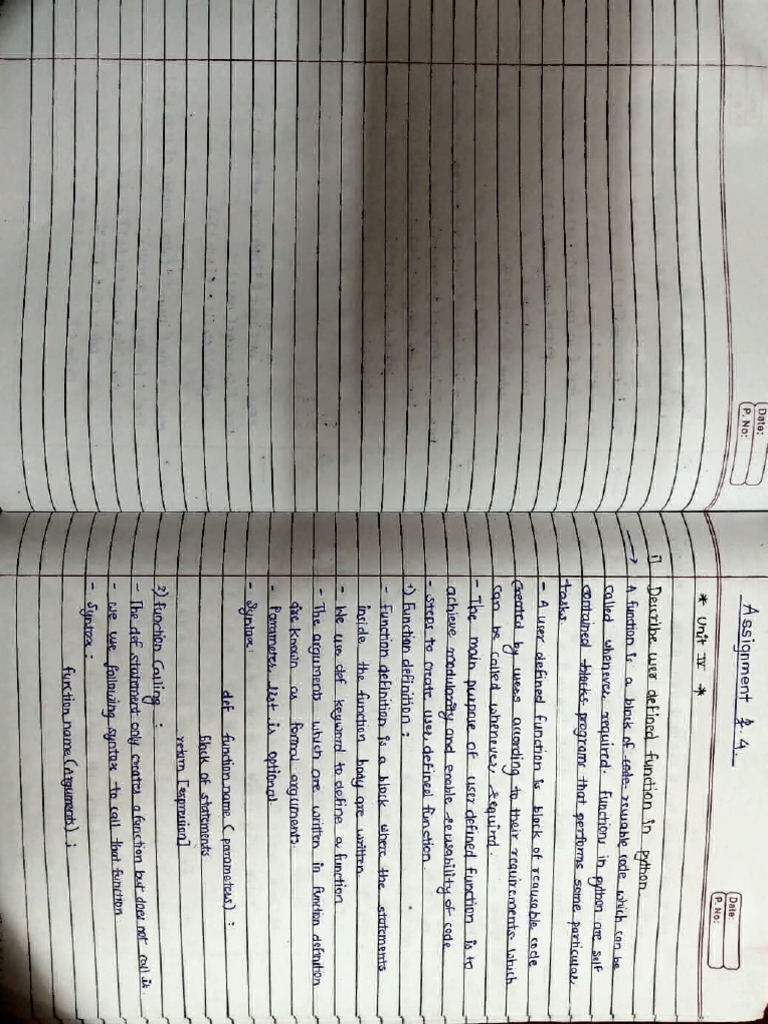 Date:
P. No:
Date:
P. No:
Assignment 4.
* Unit IV *
1] Describe user defined function in python.
→ A function is a block of code reusable code which can be
called whenever required. Functions in python are self
contained blocks programs that performs some particular
tasks.
- A user defined function is block of reausable code
created by users according to their requirements which
can be called whenever required.
- The main purpose of user defined function is to
achieve modularity and enable reusability of code
- Steps to create user defined function
1) Function definition :
- Function definition is a block where the statements
inside the function body are written.
- We use def keyword to define a function
- The arguments which are written in function definition
are known as formal arguments.
- Parameter list is optional
- Syntax:
def function name ( parameters) :
block of statements
return [expression]
2) Function Calling :
- The def statement only creates a function but does not call it.
- we use following syntax to call that function
- Syntax :
function name (Arguments) ;